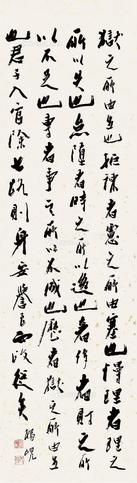 獄之所由生也拒諫者慮之所由塞也慢理者理之
所以失也怠墮者時之所以後也者侈者財之所
以不足也專者事之所以不成也歷者獄之所由生
也君子入官除七路則身安譽至而政從矣